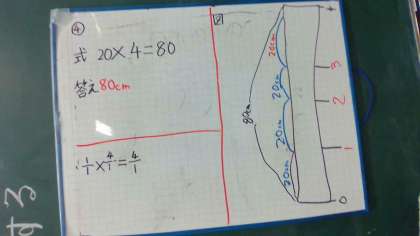 ④
式 20×4=80
答え80cm
1/1×4/1=4/1
図
20cm
20cm
20cm
20cm
80cm
4
3
2
1
0